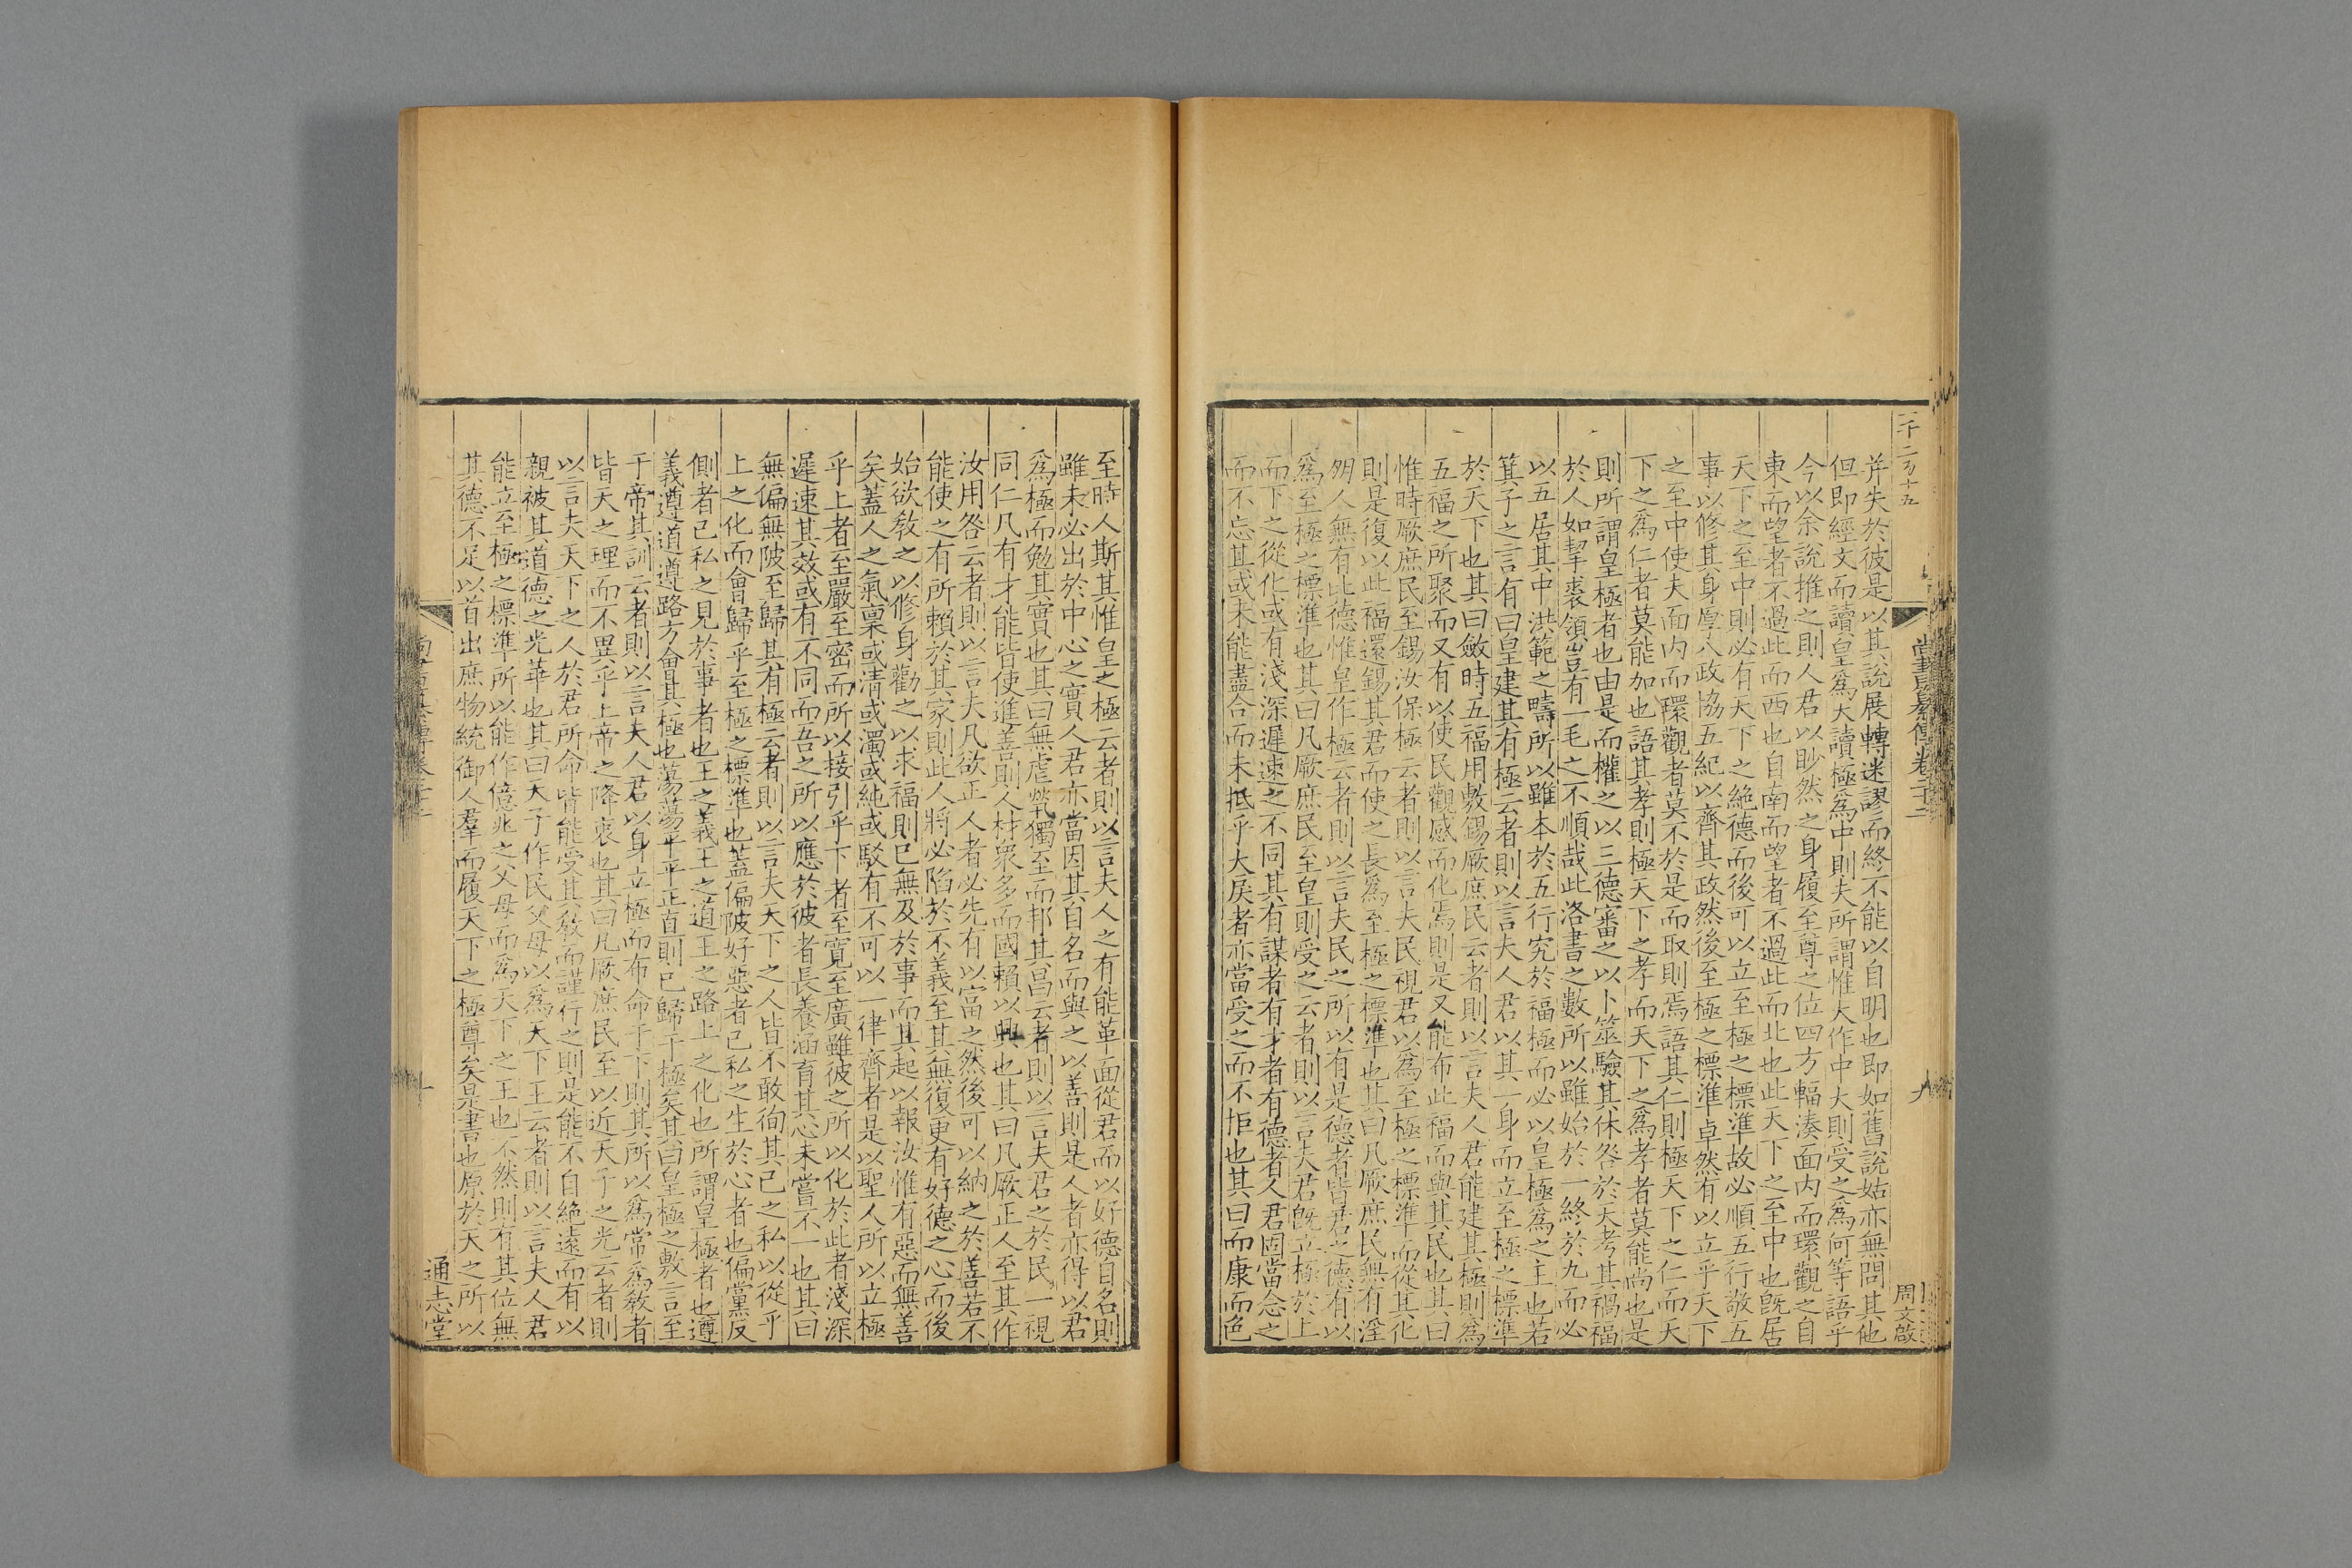 二千二百十五
尚書纂傳卷二十二
九
周文啟
并失於彼是以其說展轉迷謬而終不能以自明也即如舊說姑亦無問其他
但即經文而讀皇爲大讀極爲中則夫所謂惟大作中大則受之爲何等語乎
今以余說推之則人君以眇然之身履至尊之位四方輻湊面內而環觀之自
東而望者不過此而西也自南而望者不過此而北也此天下之至中也旣居
天下之至中則必有天下之絶德而後可以立至極之標準故必順五行敬五
事以修其身厚八政協五紀以齊其政然後至極之標準卓然有以立乎天下
之至中使夫面內而環觀者莫不於是而取則焉語其仁則極天下之仁而天
下之爲仁者莫能加也語其孝則極天下之孝而天下之爲孝者莫能尚也是
則所謂皇極者也由是而權之以三德審之以卜筮驗其休咎於天考其禍福
於人如挈裘領豈有一毛之不順哉此洛書之數所以雖始於一終於九而必
以五居其中洪範之疇所以雖本於五行究於福極而必以皇極爲之主也若
箕子之言有曰皇建其有極云者則以言夫人君以其一身而立至極之標準
於天下也其曰斂時五福用敷錫厥庶民云者則以言夫人君能建其極則爲
五福之所聚而又有以使民觀感而化焉則是又能布此福而與其民也其曰
惟時厥庶民至錫汝保極云者則以言夫民視君以爲至極之標準而從其化
則是復以此福還錫其君而使之長爲至極之標準也其曰凡厥庶民無有淫
朋人無有比德惟皇作極云者則以言夫民之所以有是德者皆君之德有以
爲至極之標準也其曰凡厥庶民至皇則受之云者則以言夫君旣立極於上
而下之從化或有淺深遲速之不同其有謀者有才者有德者人君固當念之
而不忘其或未能盡合而未抵乎大戾者亦當受之而不拒也其曰而康而色
至時人斯其惟皇之極云者則以言夫人之有能革面從君而以好德自名則
雖未必出於中心之實人君亦當因其自名而與之以善則是人者亦得以君
爲極而勉其實也其曰無虐煢獨至而邦其昌云者則以言夫君之於民一視
同仁凡有才能皆使進善則人材衆多而國賴以興也其曰凡厥正人至其作
汝用咎云者則以言夫凡欲正人者必先有以富之然後可以納之於善若不
能使之有所賴於其家則此人將必陷於不義至其無復更有好德之心而後
始欲教之以修身勸之以求福則已無及於事而其起以報汝惟有惡而無善
矣蓋人之氣稟或清或濁或純或駁有不可以一律齊者是以聖人所以立極
乎上者至嚴至密而所以接引乎下者至寬至廣雖彼之所以化於此者淺深
遲速其效或有不同而吾之所以應於彼者長養涵育其心未嘗不一也其曰
無偏無陂至歸其有極云者則以言夫天下之人皆不敢徇其己之私以從乎
上之化而會歸乎至極之標準也蓋偏陂好惡者己私之生於心者也偏黨反
側者己私之見於事者也王之義王之道王之路上之化也所謂皇極者也遵
義遵道遵路方會其極也蕩蕩平平正直則已歸于極矣其曰皇極之敷言至
于帝其訓云者則以言夫人君以身立極而布命于下則其所以爲常爲教者
皆天之理而不異乎上帝之降衷也其曰凡厥庶民至以近天子之光云者則
以言夫天下之人於君所命皆能受其教而謹行之則是能不自絶遠而有以
親被其道德之光華也其曰天子作民父母以爲天下王云者則以言夫人君
能立至極之標準所以能作億兆之父母而爲天下之王也不然則有其位無
其德不足以首出庶物統御人羣而履天下之極尊矣是書也原於天之所以
十
通志堂